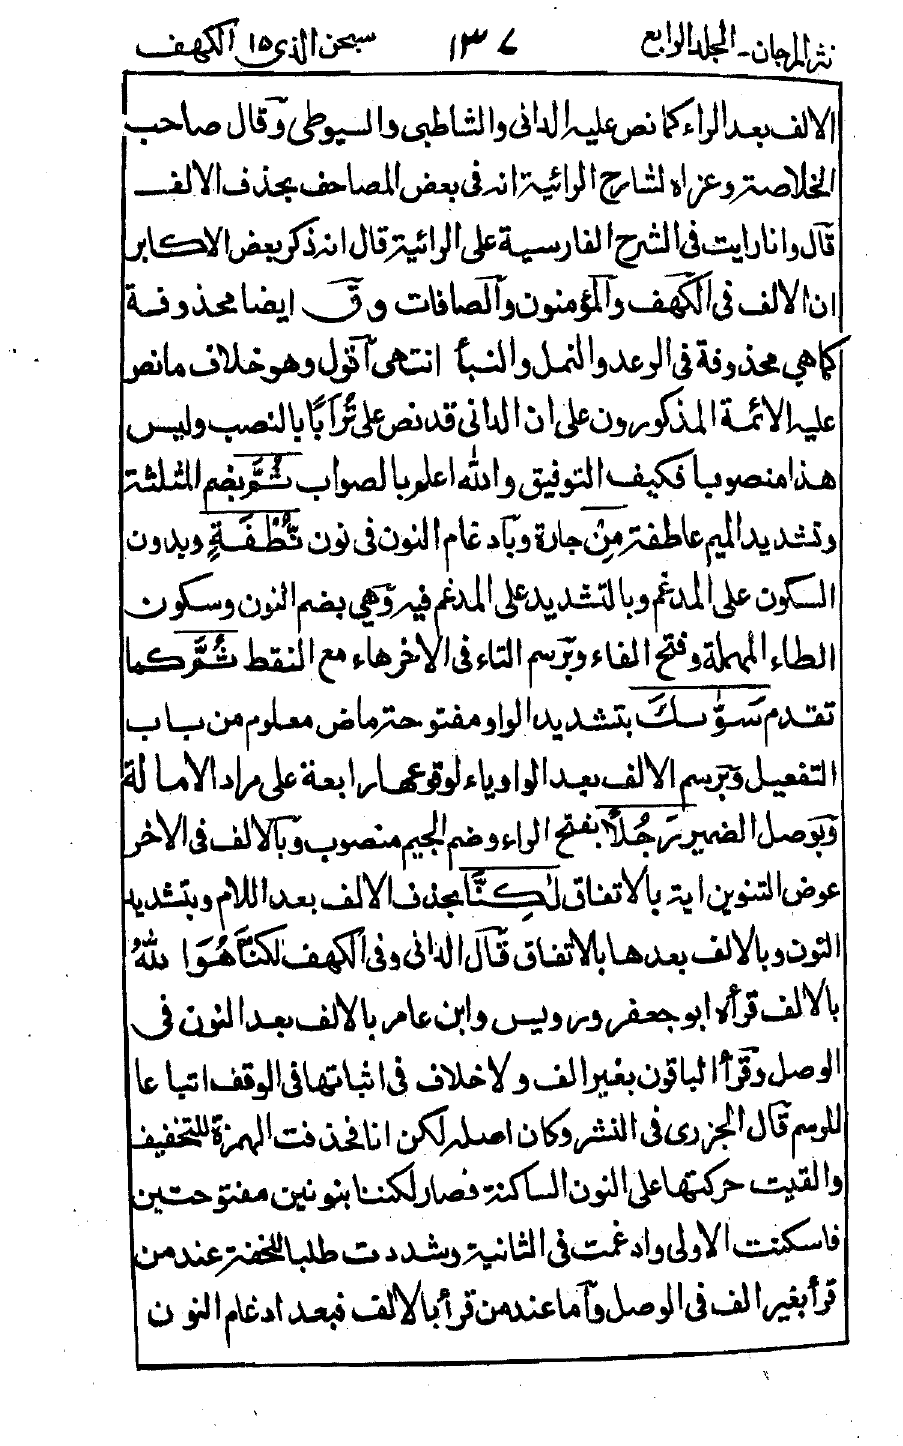 نثر المرجان - المجلد الرابع ١٣٧ سبحن الذى ١٥ الكهف
الالف بعد الراء كما نص عليه الدانى والشاطبى والسيوطى وقال صاحب
الخلاصة وعزاه لشارح الرائية انه فى بعض المصاحف بحذف الالف
قال وانا رايت فى الشرح الفارسية على الرائية قال انه ذكر بعض الاكابر
ان الالف فى الكهف والمؤمنون والصافات وق ايضا محذوفة
كما هي محذوفة فى الرعد والنمل والنبأ انتهى اقول وهو خلاف ما نص
عليه الائمة المذكورون على ان الدانى قد نص على تُرَابًا بالنصب وليس
هذا منصوبا فكيف التوفيق والله اعلم بالصواب ثُمَّ بضم المثلثة
وتشديد الميم عاطفة مِنْ جارة وبادغام النون فى نون نُّطْفَةٍ وبدون
السكون على المدغم وبالتشديد على المدغم فيه وهي بضم النون وسكون
الطاء المهملة وفتح الفاء وبرسم التاء فى الاخر هاء مع النقط ثُمَّ كما
تقدم سَوّٰىكَ بتشديد الواو مفتوحة ماض معلوم من باب
التفعيل وبرسم الالف بعد الواو ياء لوقوعها رابعة على مراد الامالة
وبوصل الضمير رَجُلًا بفتح الراء وضم الجيم منصوب وبالالف فى الاخر
عوض التنوين اية بالاتفاق لٰكِنَّا بحذف الالف بعد اللام وبتشديد
النون وبالالف بعدها بالاتفاق قال الدانى وفى الكهف لكنَّا هُوَا للّٰهُ
بالالف قرأه ابو جعفر ورويس وابن عامر بالالف بعد النون فى
الوصل وقرأ الباقون بغير الف ولا خلاف فى اثباتها فى الوقف اتباعا
للرسم قال الجزرى فى النشر وكان اصله لكن انا فحذفت الهمزة للتخفيف
والقيت حركتها على النون الساكنة فصار لكننا بنونين مفتوحتين
فاسكنت الاولى وادغمت فى الثانية وشددت طلبا للخفة عند من
قرأ بغير الف فى الوصل واما عند من قرأ بالالف فبعد ادغام النون